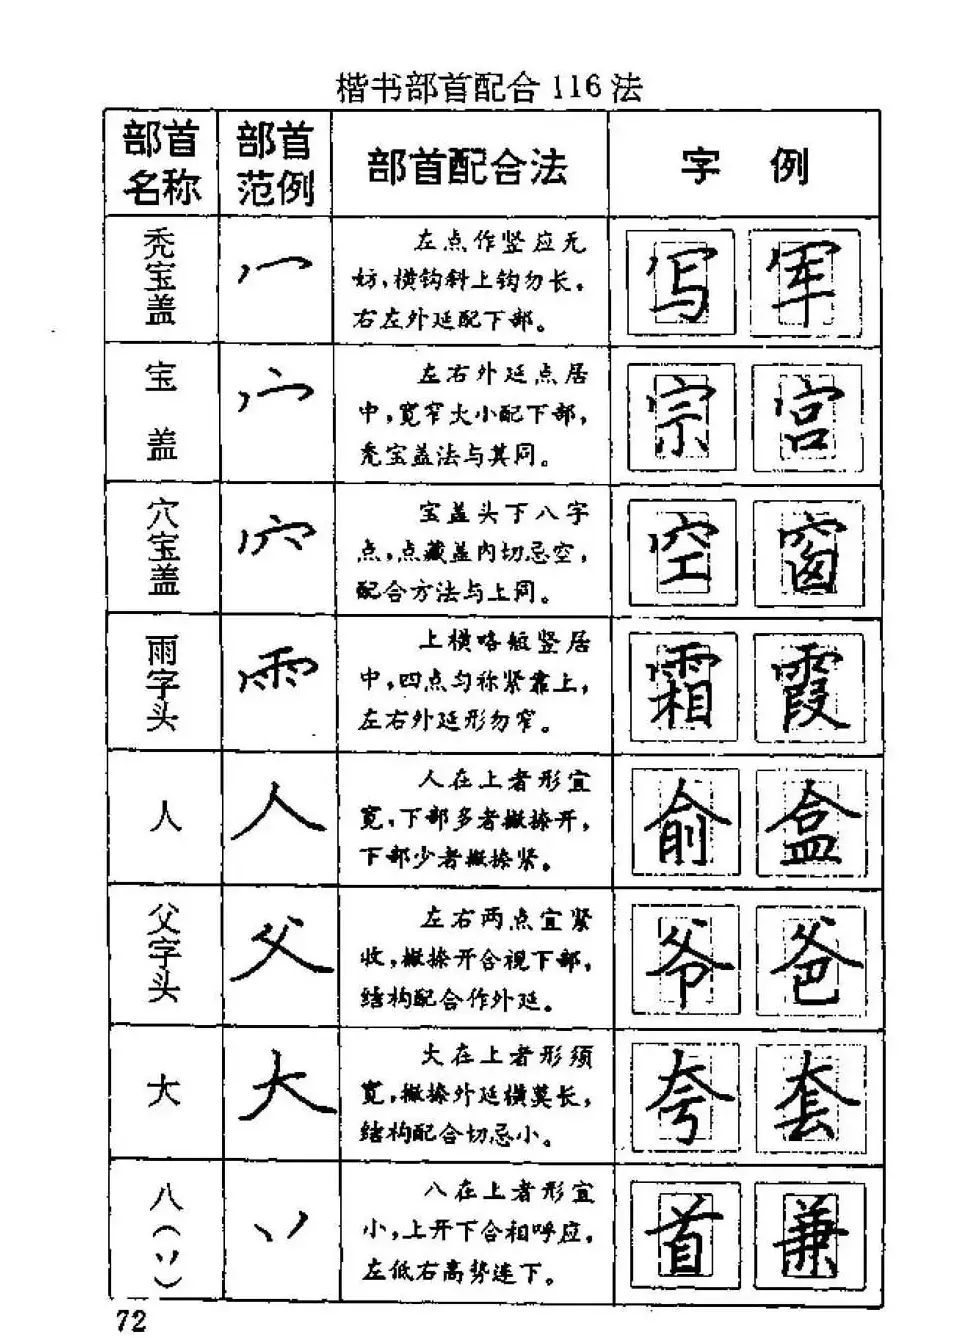 楷书部首配合116法
部首名称 部首范例 部首配合法 字例
秃宝盖 冖 左点作竖应无
妨，横钩斜上钩勿长，
右左外延配下部。 写 军
宝盖 宀 左右外延点居
中，宽窄大小配下部，
秃宝盖法与其同。 宗 宫
穴宝盖 宝盖头下八字
点，点藏盖内切忌空，
配合方法与上同。 空 窗
雨字头 雨 上横略短竖居
中，四点匀称紧靠上，
左右外延形勿窄。 霜 霞
人 人 人在上者形宜
宽，下部多者撇捺开，
下部少者撇捺紧。 俞 盒
父字头 父 左右两点宜紧
收，撇捺开合视下部，
结构配合作外延。 爷 爸
大 大 大在上者形须
宽，撇捺外延横莫长，
结构配合切忌小。 夸 套
八（丷） 丷 八在上者形宜
小，上开下合相呼应，
左低右高势连下。 首 兼
72